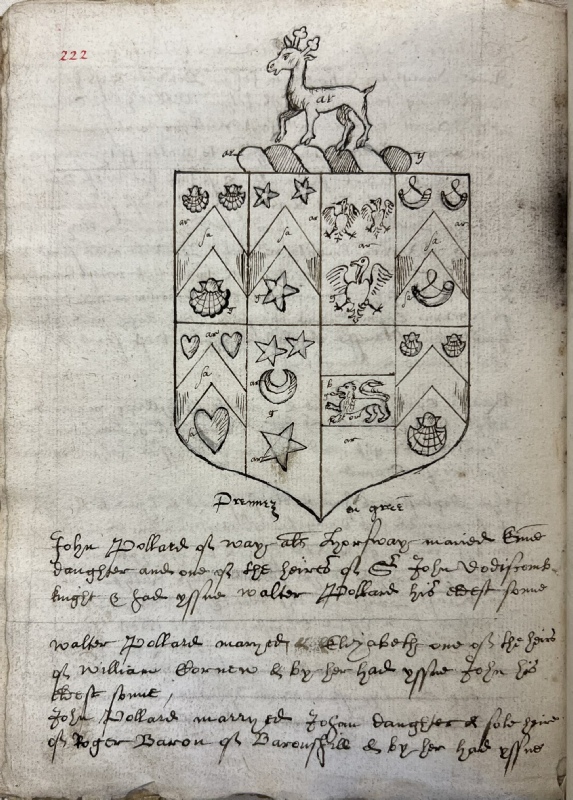 222
ar
ar y
ar ar ar
sa sa ar sa
g g sa
ar
sa ar b
g or
sa ar ar
Prennez en gree
John Pollard of way als Horsway maried Emē
daughter and one of the heires of Sr John Dodiscomb
knight & had yssue walter Pollard his eldest sonne
walter Pollard maryed Elizabeth one of the heirs
of William Cornew & by her had yssue John his
eldest sonne,
John Pollard marryed Johan daughter & sole heire
of Roger Baron of Baronshill & by her had yssue